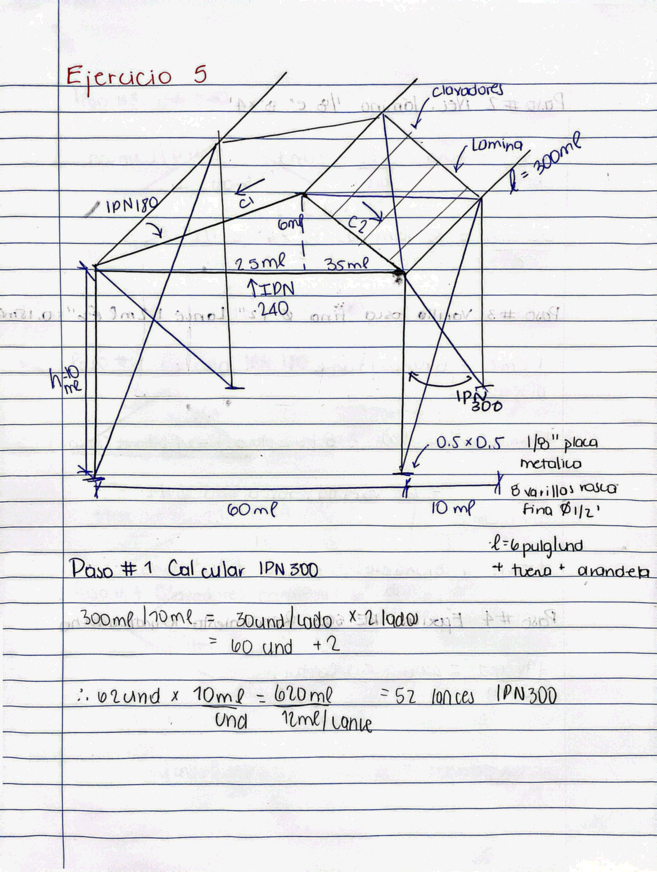 Ejercicio 5
clavadores
Lamina
l = 300ml
IPN180
C1
6ml
C2
25ml
35ml
IPN
240
h=10
ml
IPN
300
0.5 x 0.5
1/8" placa
metalica
8 varillas rosca
fina Ø 1/2'
l=6pulg/und
+ tuerca + arandela
60ml
10ml
Paso # 1 Calcular IPN300
300ml/10ml = 30und/lado x 2 lados
= 60 und +2
∴ 62und x 10ml = 620ml = 52 lances IPN300
und 12ml/lance